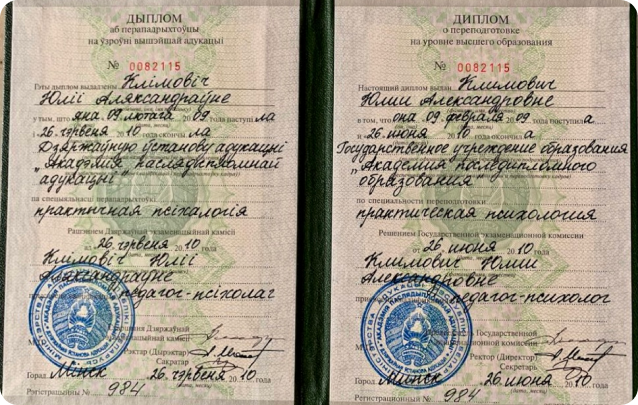 ДЫПЛОМ
аб перападрыхтоўцы
на ўзроўні вышэйшай адукацыі
№ 0082115
Гэты дыплом выдадзены Клімовіч
Юліі Аляксандраўне
у тым, што яна 09 лютага 2009 паступіла
і 26 чэрвеня 2010 года скончыла
Дзяржаўную установу адукацыі
"Акадэмія паслядыпломнай
адукацыі"
па спецыяльнасці перападрыхтоўкі
практычная псіхалогія
Рашэннем Дзяржаўнай экзаменацыйнай камісіі
ад 26 чэрвеня 2010 года
Клімовіч Юліі
Аляксандраўне
педагог-псіхолаг
Дзяржаўнай
экзаменацыйнай камісіі
Рэктар (Дырэктар)
Сакратар
Горад Мінск 26 чэрвеня 2010 года
Рэгістрацыйны № 984
ДИПЛОМ
о переподготовке
на уровне высшего образования
№ 0082115
Настоящий диплом выдан Климович
Юлии Александровне
в том, что она 09 февраля 2009 поступила
и 26 июня 2010 года окончила
Государственное учреждение образования
"Академия последипломного
образования"
по специальности переподготовки
практическая психология
Решением Государственной экзаменационной комиссии
от 26 июня 2010 года
Климович Юлии
Александровне
педагог-психолог
Государственной
экзаменационной комиссии
Ректор (Директор)
Секретарь
Город Минск 26 июня 2010 года
Регистрационный № 984